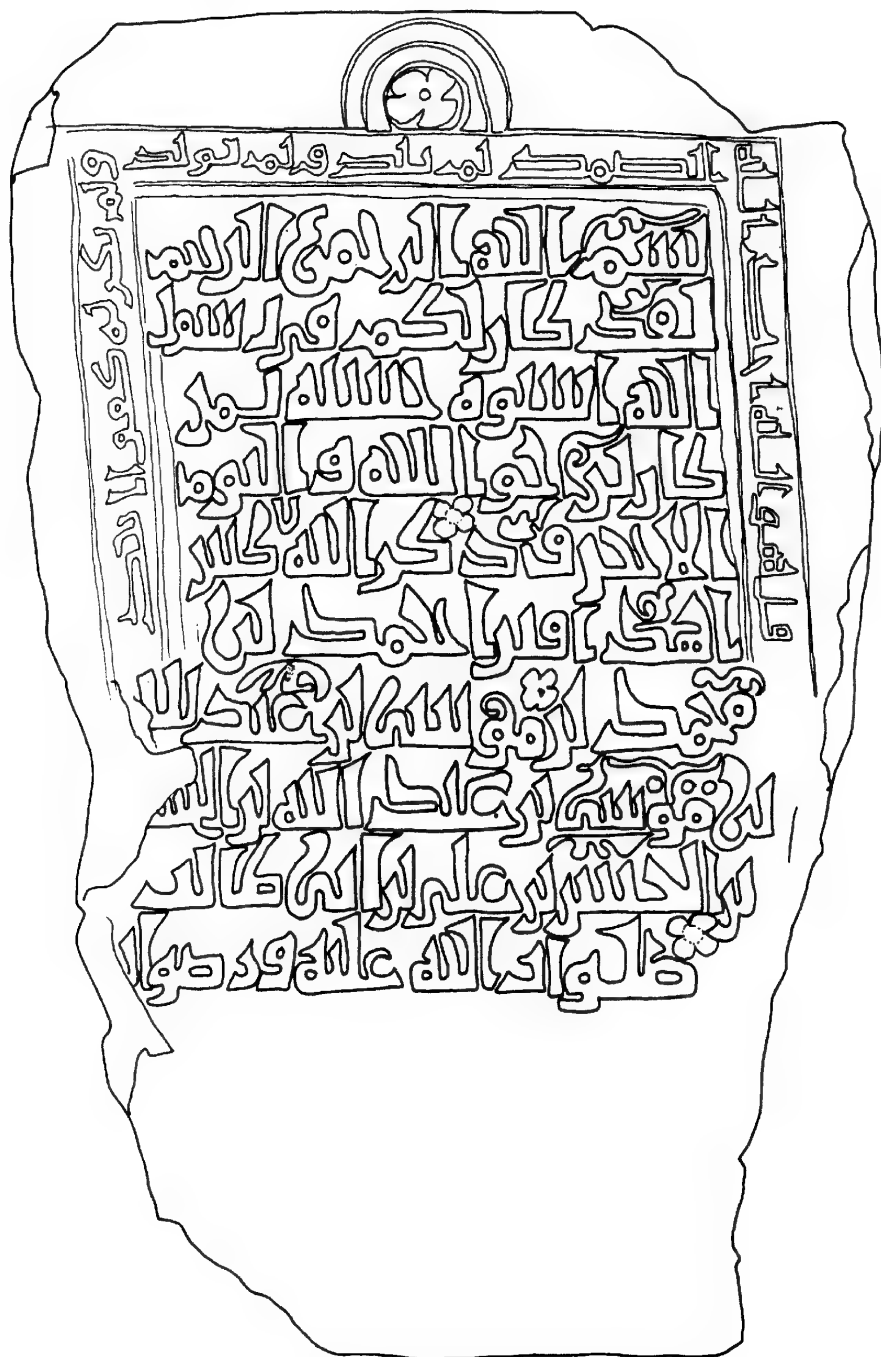 قل هو الله احد الله
الصمد لم يلد ولم يولد
ولم يكن له كفوا احد
بسم الله الرحمن الرحيم
لقد كان لكم في رسول
الله اسوة حسنة لمن
كان يرجوا الله واليوم
الاخر وذكر الله كثير
ا هذا قبر
محمد بن
بن عبد الله بن
بن الحسين بن علي بن ابي طالب
صلوات الله عليه ورضوانه